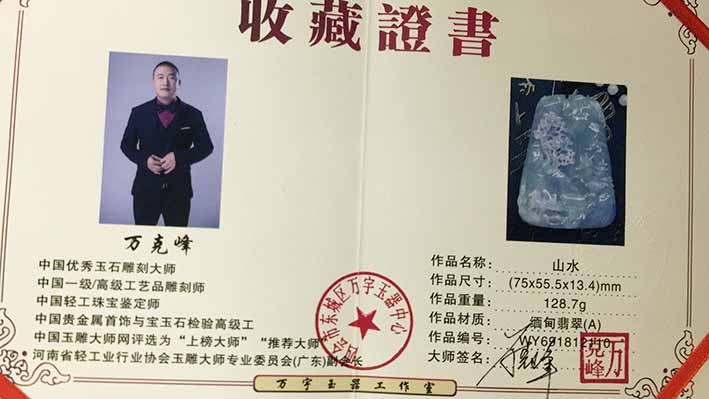 收藏證書
万克峰
中国优秀玉石雕刻大师
中国一级/高级工艺品雕刻师
中国轻工珠宝鉴定师
中国贵金属首饰与宝玉石检验高级工
中国玉雕大师网评选为“上榜大师”“推荐大师”
河南省轻工业行业协会玉雕大师专业委员会(广东)副会长
市东城区万字玉器中心
作品名称: 山水
作品尺寸: (75x55.5x13.4)mm
作品重量: 128.7g
作品材质: 缅甸翡翠(A)
作品编号: WY691812110
大师签名:
万克峰
万字玉器工作室